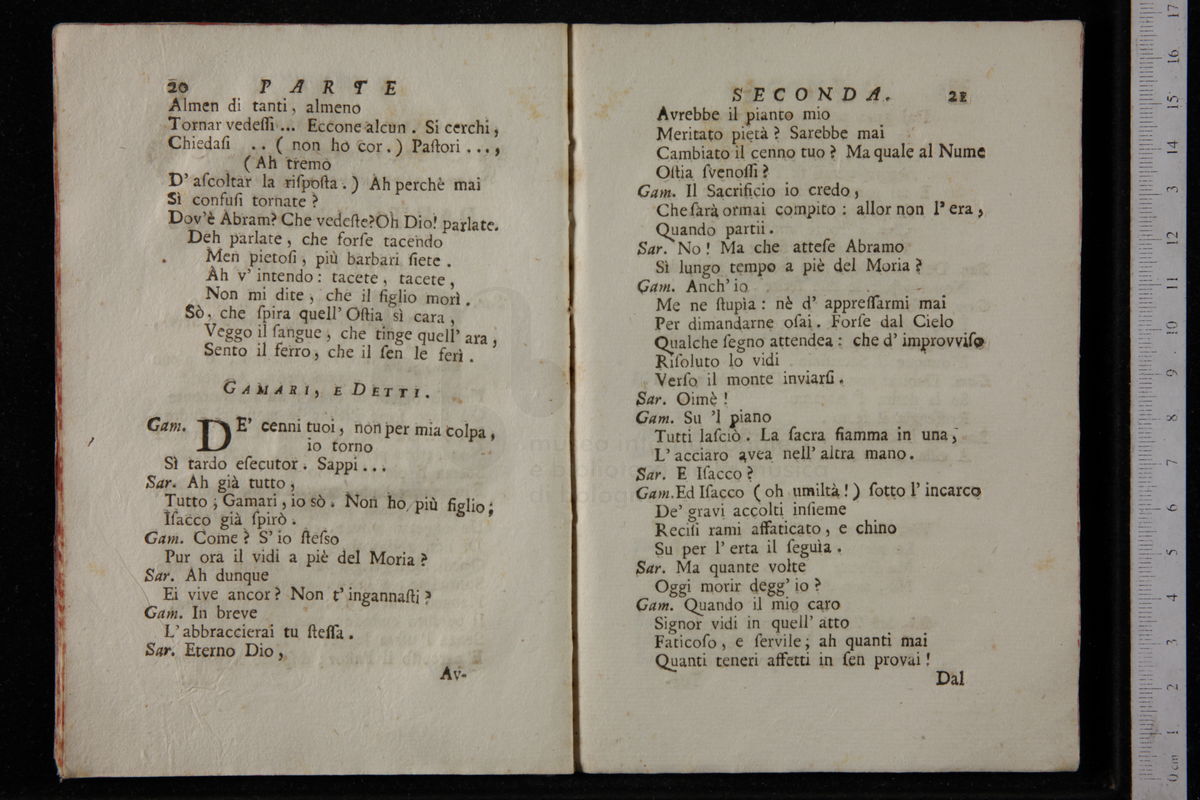 20 PARTE
Almen di tanti, almeno
Tornar vedeſſi ... Eccone alcun. Si cerchi,
Chiedaſi .. ( non ho cor.) Paſtori ...,
(Ah tremo
D'aſcoltar la riſpoſta.) Ah perchè mai
Sì confuſi tornate?
Dov'è Abram? Che vedeſte? Oh Dio! parlate.
Deh parlate, che forſe tacendo
Men pietoſi, più barbari ſiete.
Ah v'intendo: tacete, tacete,
Non mi dite, che il figlio morì.
Sò, che ſpira quell'Oſtia sì cara,
Veggo il ſangue, che tinge quell'ara,
Sento il ferro, che il ſen le ferì.
GAMARI, E DETTI.
Gam. DE' cenni tuoi, non per mia colpa,
io torno
Sì tardo eſecutor. Sappi...
Sar. Ah già tutto,
Tutto, Gamari, io sò. Non ho più figlio;
Iſacco già ſpirò.
Gam. Come? S'io ſteſso
Pur ora il vidi a piè del Moria?
Sar. Ah dunque
Ei vive ancor? Non t'ingannaſti?
Gam. In breve
L'abbraccierai tu ſteſſa.
Sar. Eterno Dio,
Av-
SECONDA. 21
Avrebbe il pianto mio
Meritato pietà? Sarebbe mai
Cambiato il cenno tuo? Ma quale al Nume
Oſtia ſvenoſſi?
Gam. Il Sacrificio io credo,
Che ſarà ormai compito: allor non l'era,
Quando partii.
Sar. No! Ma che atteſe Abramo
Sì lungo tempo a piè del Moria?
Gam. Anch'io
Me ne ſtupìa: nè d'appreſſarmi mai
Per dimandarne oſai. Forſe dal Cielo
Qualche ſegno attendea: che d'improvviſo
Riſoluto lo vidi
Verſo il monte inviarſi.
Sar. Oimè!
Gam. Su 'l piano
Tutti laſciò. La ſacra fiamma in una,
L'acciaro avea nell'altra mano.
Sar. E Iſacco?
Gam. Ed Iſacco (oh umiltà!) ſotto l'incarco
De' gravi accolti inſieme
Reciſi rami affaticato, e chino
Su per l'erta il ſeguìa.
Sar. Ma quante volte
Oggi morir degg'io?
Gam. Quando il mio caro
Signor vidi in quell'atto
Faticoſo, e ſervile; ah quanti mai
Quanti teneri affetti in ſen provai!
Dal